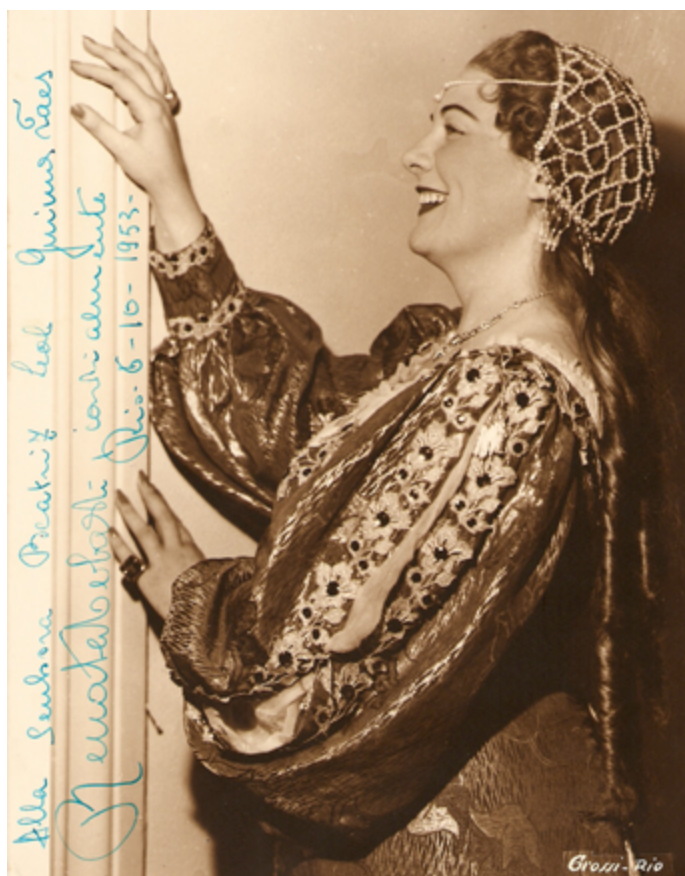 Alla Senhora Beatriz Leal Guimarães
Renata Tebaldi cordialmente
Rio-6-10-1953-
Grossi-Rio